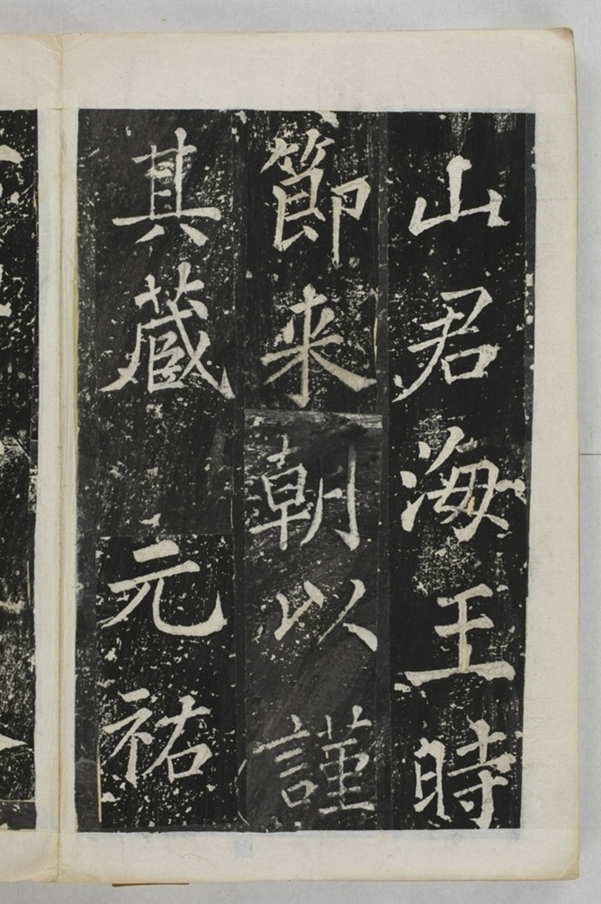 山君海王時
節来朝以謹
其蔵元祐